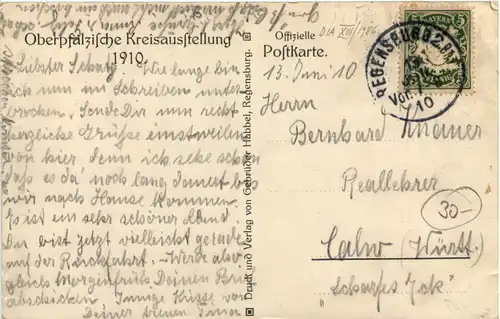 Oberpfälzische Kreisausstellung
1910.
Liebster Schatz! Wie lange bin
ich nun im Schreiben unter-
brochen. Sende Dir nun recht
herzliche Grüße einstweilen
von hier denn ich sehe schon
daß es da noch lang dauert bis
wir nach Hause kommen.
Es ist ein sehr schönes Land
Du bist jetzt vielleicht gerade
auf der Rückfahrt. Werde aber
gleich morgenfrüh Deinen Brief
abschicken. Innige Küsse von
Deiner
Druck und Verlag von Gebrüder Habbel, Regensburg.
Offizielle
Postkarte.
13. Juni 10
BAYERN
5
REGENSBURG 2
Vor.
10
Herrn
Bernhard Knauer
Reallehrer
30-
Calw (Württ.)
"Scharfes Eck"